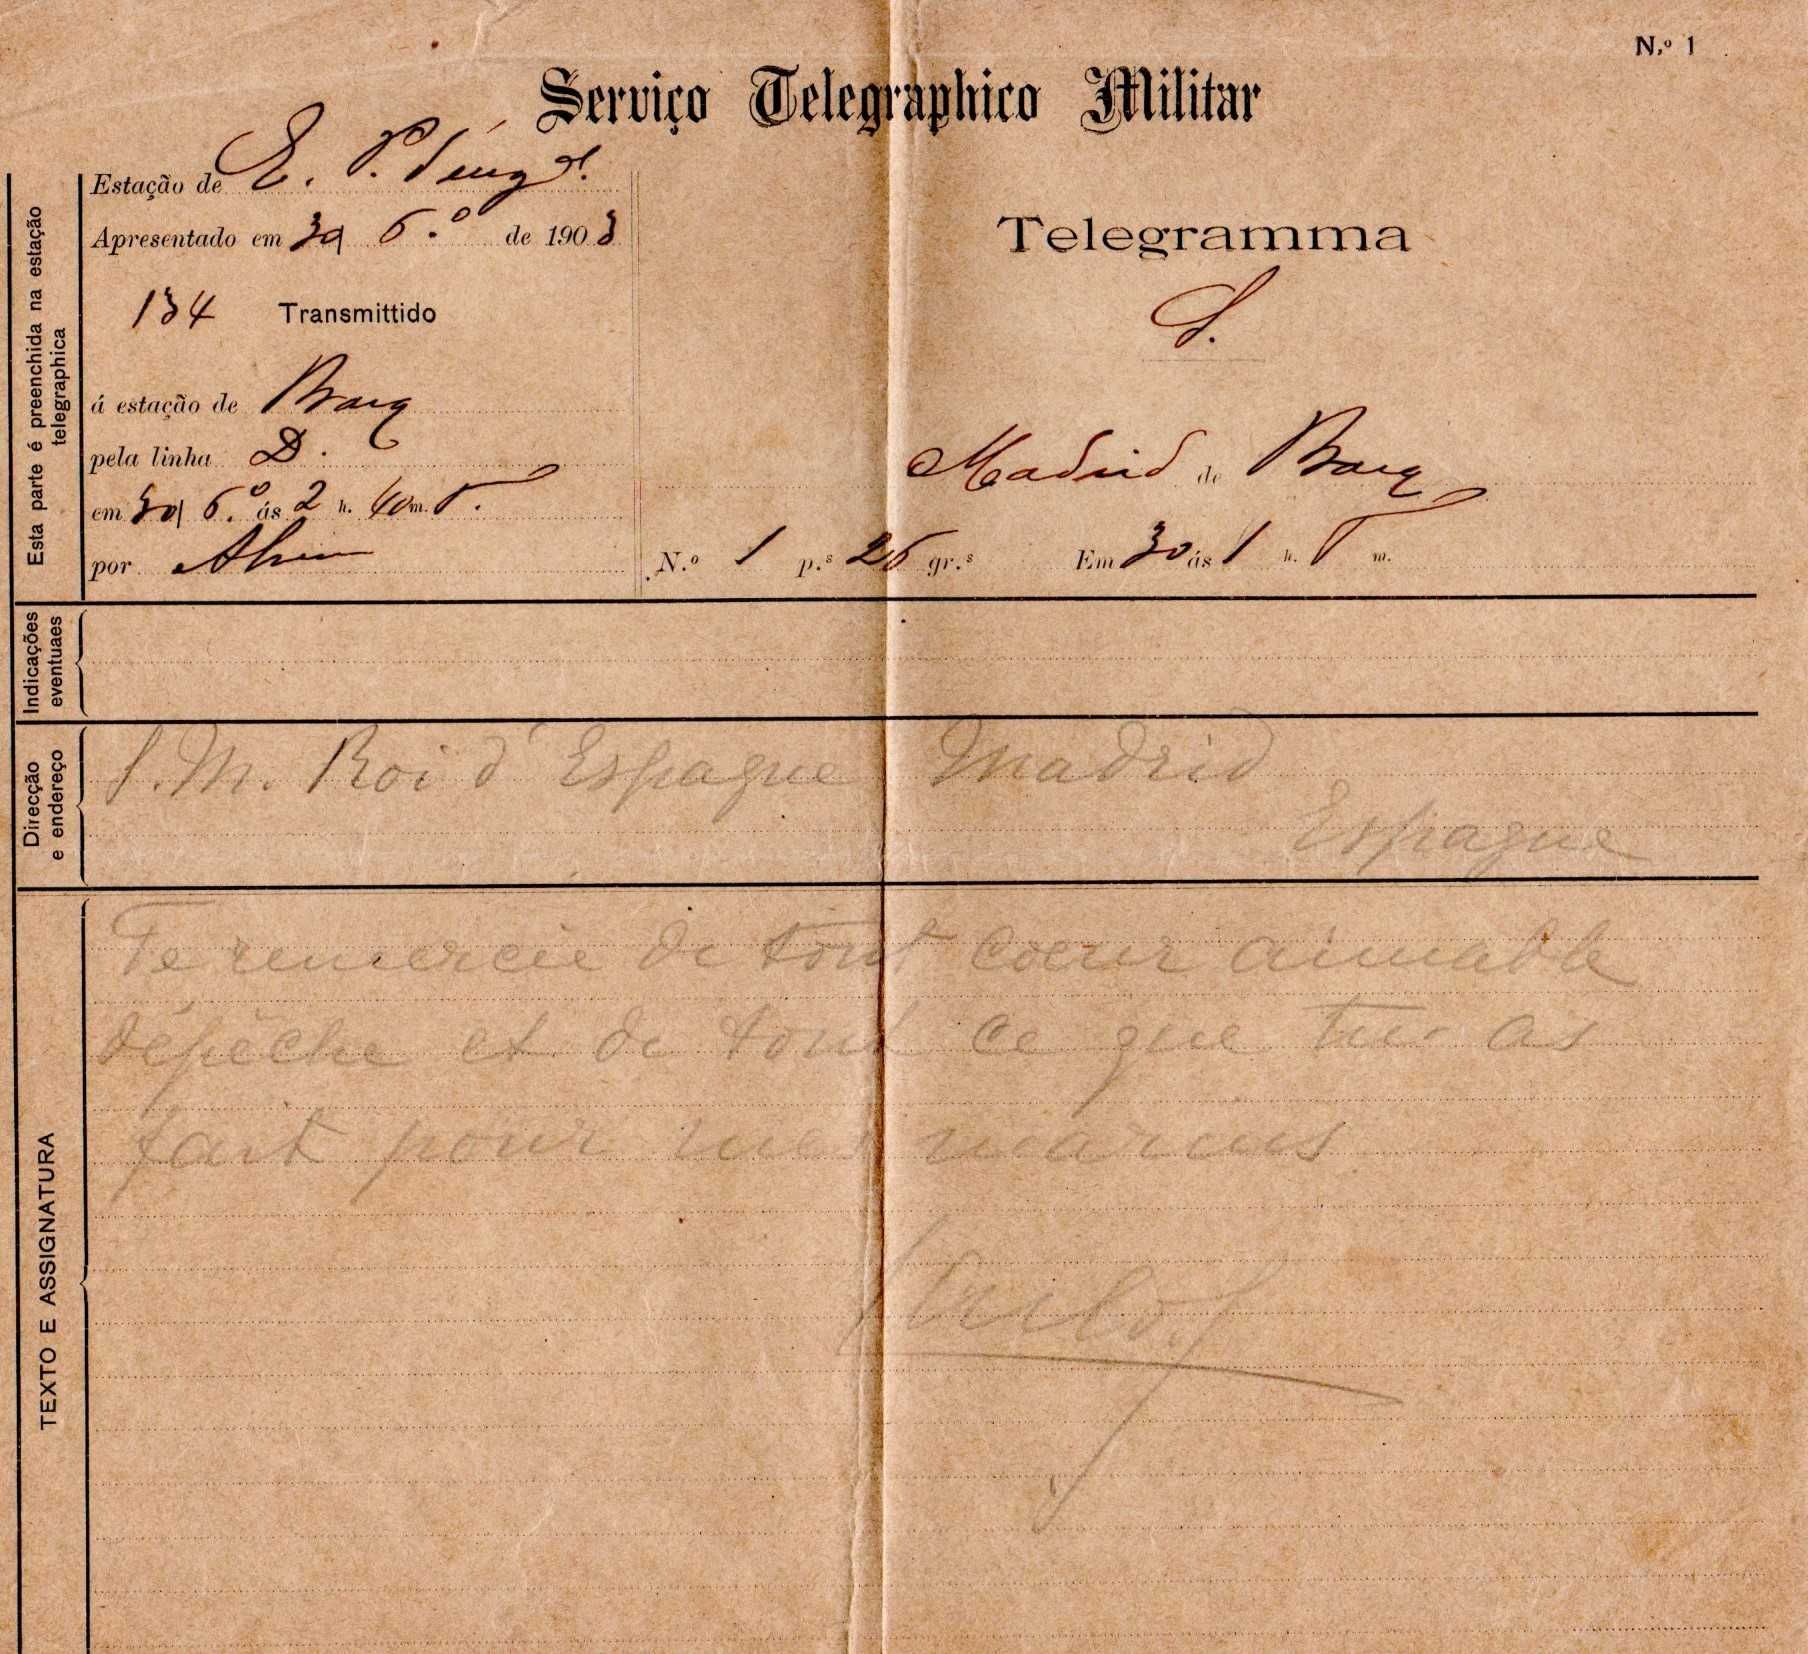 N.º 1
Serviço Telegraphico Militar
Esta parte é preenchida na estação
telegraphica
Estação de E. P.
Apresentado em 30 6.º de 1903
134 Transmittido
á estação de Barq
pela linha D.
em 30 6.º ás 2 h. 40 m. T.
por
Telegramma
S.
Madrid de Barq
N.º 1 p.s 26 gr.s Em 30 ás 1 h. T m.
Indicações
eventuaes
Direcção
e endereço
S. M. Roi d'Espagne Madrid
Espagne
TEXTO E ASSIGNATURA
Te remercie de tout coeur aimable
dépêche et de tout ce que tu as
fait pour mes marins